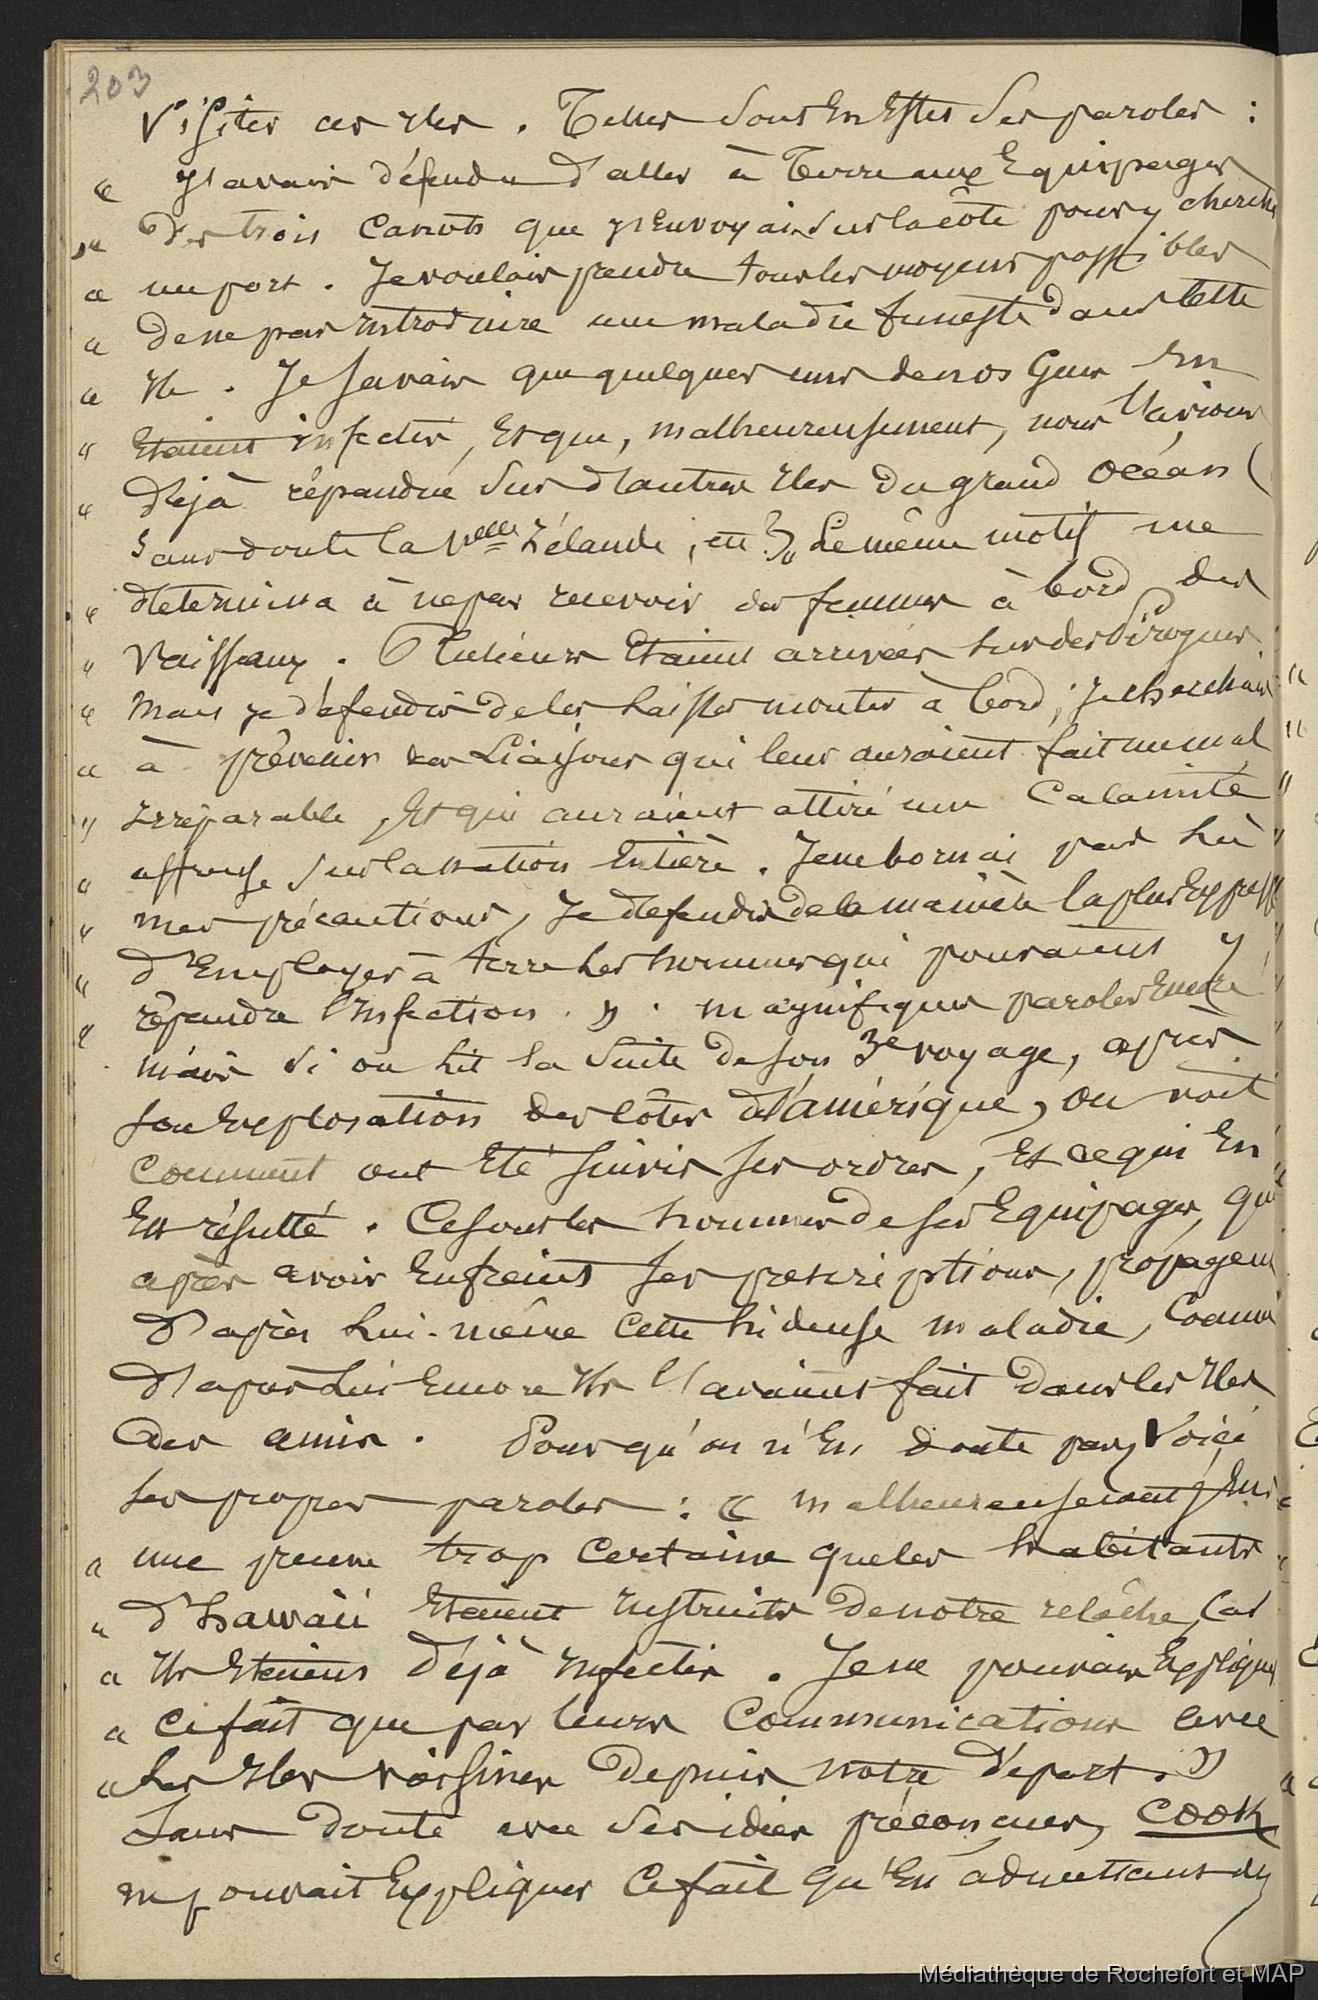 203
Visiter ces Iles. Telles sont En Effet ses paroles :
« J'avais défendu d'aller à Terre aux Equipages
« Des trois Canots que j'Envoyais sur la côte pour y chercher
« un port. Je voulais prendre tous les moyens possibles
« De ne pas Introduire une maladie funeste dans Cette
« Ile. Je savais que quelques uns de nos Gens En
« Etaient infectés, Et que, malheureusement, nous l'avions
« Déjà répandue sur d'autres Iles du grand Océan (
sans doute la Nelle Zélande, etc ?) « Le même motif me
« détermina à ne pas recevoir des femmes à bord des
« Vaisseaux. Plusieurs Etaient arrivées sur des Pirogues.
« Mais je défendis de les laisser monter à bord ; Je cherchais
« à prévenir des Liaisons qui leur auraient fait un mal
« Irréparable, Et qui auraient attiré une Calamité
« affreuse sur la nation Entière. Je ne bornai pas là
« mes précautions, Je défendis de la manière la plus Expresse
« d'Employer à terre les hommes qui pouvaient y
« répandre l'Infection. » . magnifiques paroles Encore
mais si on lit la suite de son 3e voyage, après
son Exploration des côtes d'Amérique, on voit
comment ont Eté suivis ses ordres, Et ce qui En
Est résulté. Ce sont les hommes de ses Equipages, qui
après avoir Enfreint ses prescriptions, propagent
D'après Lui-même cette hideuse maladie, Comme
D'après Lui Encore Ils l'avaient fait dans les Iles
des amis. Pour qu'on n'En doute pas, Voici
ses propres paroles : « malheureusement, J'eus
« une preuve trop Certaine que les habitants
« d'hawaïi Etaient Instruits de notre relâche, Car
« Ils Etaient Déjà Infectés. Je ne pouvais Expliquer
« Ce fait que par leurs Communications avec
« Les Iles voisines Depuis notre Départ. »
Sans Doute avec Ses idées préconçues, COOK
ne pouvait Expliquer Ce fait qu'En admettant des
Médiathèque de Rochefort et MAP